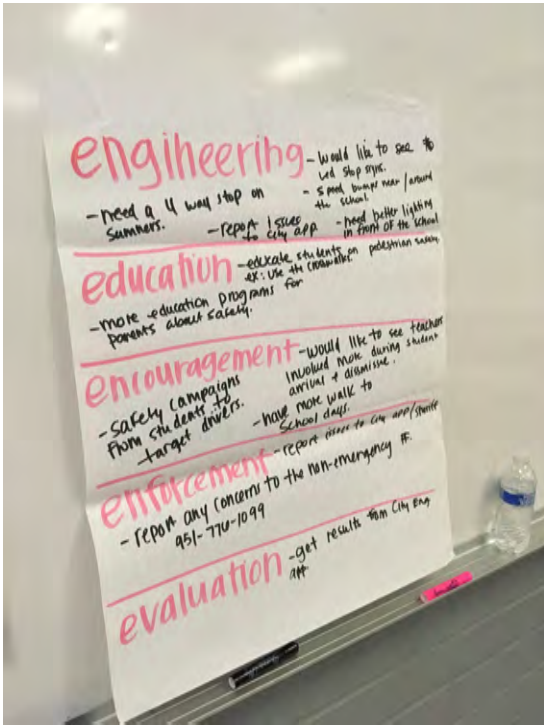 engineering
- would like to see
led stop signs.
- speed bumps near/around
the school.
- need a 4 way stop on
Sumners.
- report issues
to city app
- need better lighting
in front of the school
education
- educate students on pedestrian safety.
ex: use the crosswalks.
- more education programs for
parents about safety.
encouragement
- would like to see teachers
involved more during student
arrival + dismissle.
- safety campaigns
from students to
target drivers.
- have more walk to
school days.
enforcement
- report issues to city app/sheriff
- report any concerns to the non-emergency #.
951-776-1099
evaluation
- get results from City Eng
app.